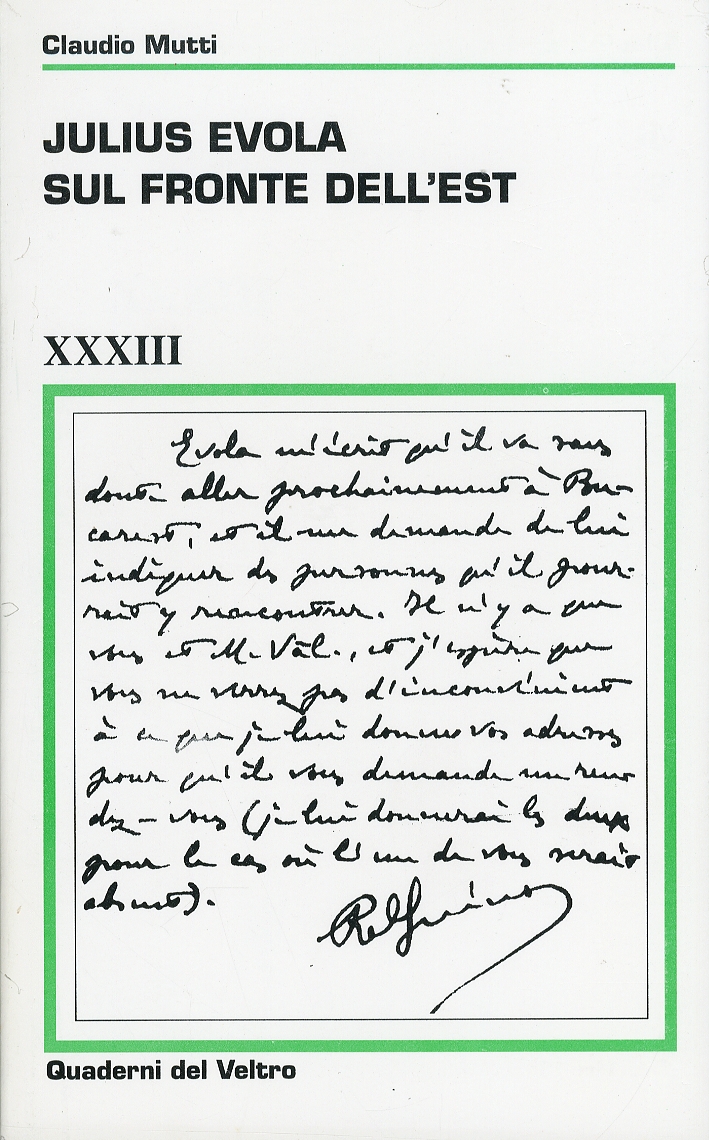 Claudio Mutti
JULIUS EVOLA
SUL FRONTE DELL'EST
XXXIII
Evola m'écrit qu'il va sans
doute aller prochainement à Bu-
carest, et il me demande de lui
indiquer des personnes qu'il pour-
rait y rencontrer. Il n'y a que
vous et M. Vâl., et j'espère que
vous ne verrez pas d'inconvénient
à ce que je lui donne vos adresses
pour qu'il vous demande un ren-
dez-vous (je lui donnerai les deux
pour le cas où l'un de vous serait
absent).
René Guénon
Quaderni del Veltro